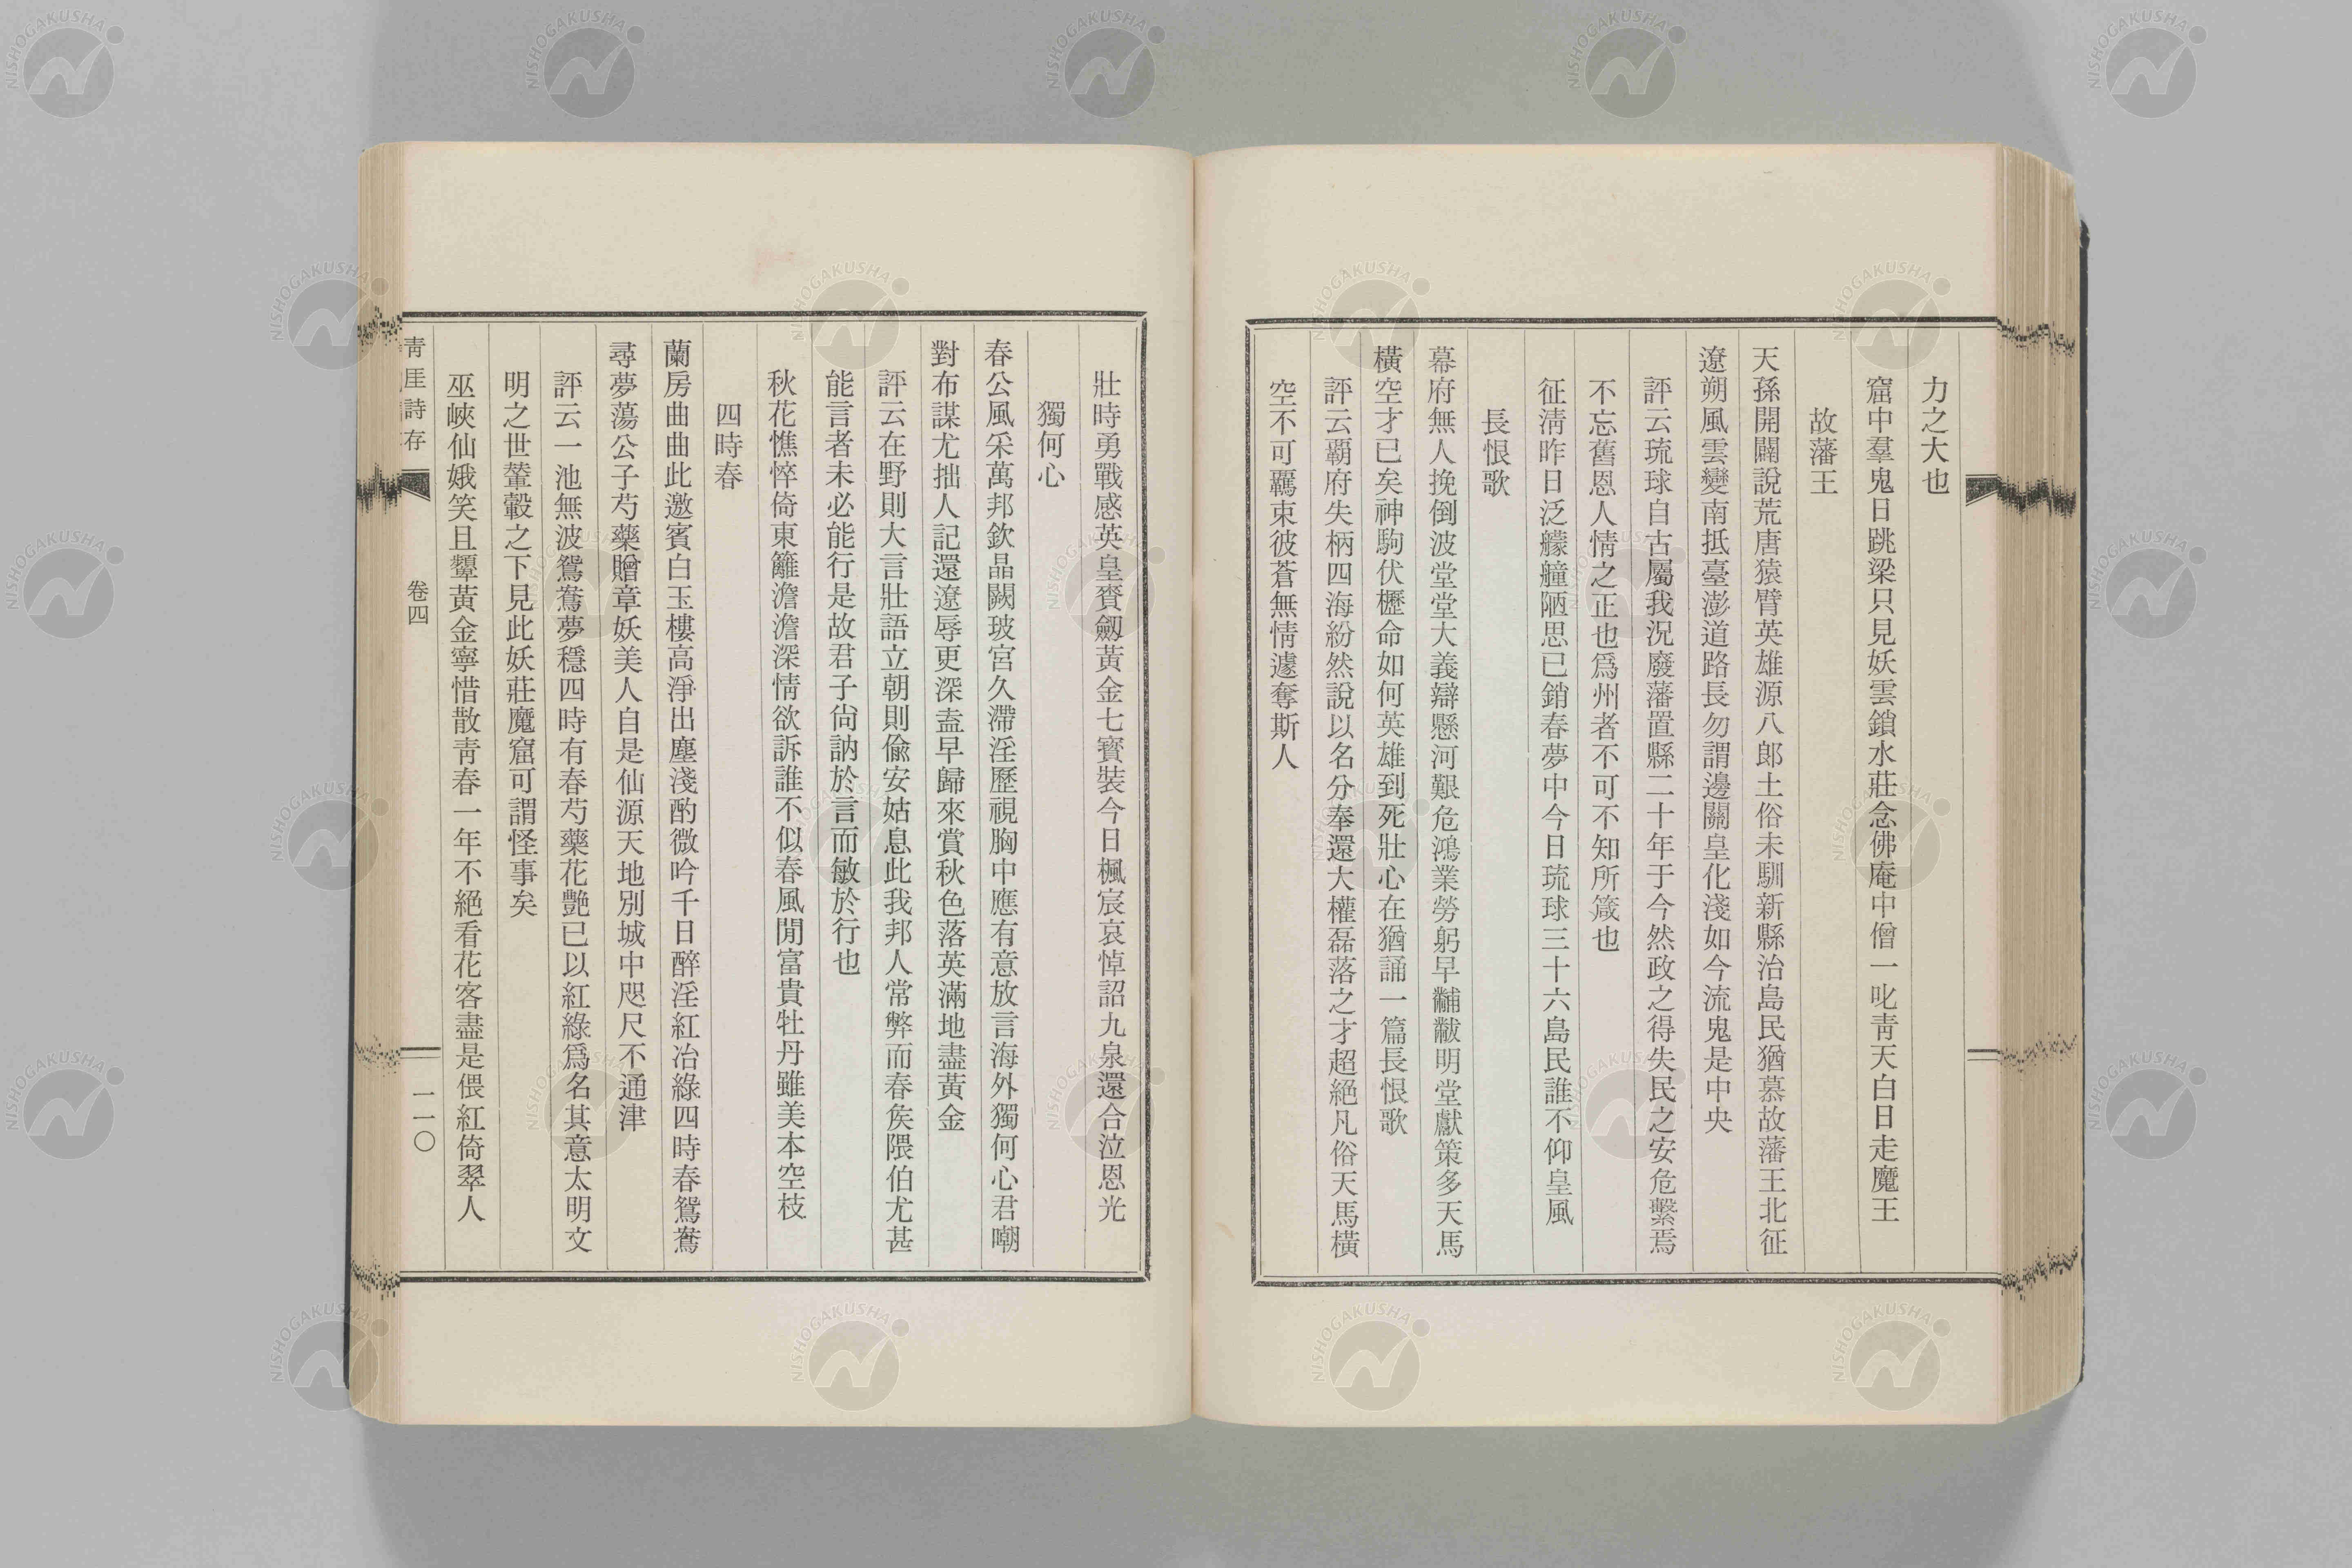 力之大也
窟中羣鬼日跳梁只見妖雲鎖水莊念佛庵中僧一叱靑天白日走魔王
故藩王
天孫開闢說荒唐猿臂英雄源八郎土俗未馴新縣治島民猶慕故藩王北征
遼朔風雲變南抵臺澎道路長勿謂邊關皇化淺如今流鬼是中央
評云琉球自古屬我況廢藩置縣二十年于今然政之得失民之安危繫焉
不忘舊恩人情之正也爲州者不可不知所箴也
征淸昨日泛艨艟陋思已銷春夢中今日琉球三十六島民誰不仰皇風
長恨歌
幕府無人挽倒波堂堂大義辯懸河艱危鴻業勞躬早黼黻明堂獻策多天馬
橫空才已矣神駒伏櫪命如何英雄到死壯心在猶誦一篇長恨歌
評云覇府失柄四海紛然說以名分奉還大權磊落之才超絕凡俗天馬橫
空不可羈束彼蒼無情遽奪斯人
壯時勇戰感英皇賚劔黃金七寶裝今日楓宸哀悼詔九泉還合泣恩光
獨何心
春公風采萬邦欽晶闕玻宮久滯淫歷視胸中應有意放言海外獨何心君嘲
對布謀尤拙人記還遼辱更深盍早歸來賞秋色落英滿地盡黃金
評云在野則大言壯語立朝則偸安姑息此我邦人常弊而春矦隈伯尤甚
能言者未必能行是故君子尙訥於言而敏於行也
秋花憔悴倚東籬澹澹深情欲訴誰不似春風閒富貴牡丹雖美本空枝
四時春
蘭房曲曲此邀賓白玉樓高淨出塵淺酌微吟千日醉淫紅冶綠四時春鴛鴦
尋夢蕩公子芍藥贈章妖美人自是仙源天地別城中咫尺不通津
評云一池無波鴛鴦夢穩四時有春芍藥花艷已以紅綠爲名其意太明文
明之世輦轂之下見此妖莊魔窟可謂怪事矣
巫峽仙娥笑且顰黃金寧惜散靑春一年不絕看花客盡是偎紅倚翠人
靑厓詩存 卷四 一一〇
NISHOGAKUSHA